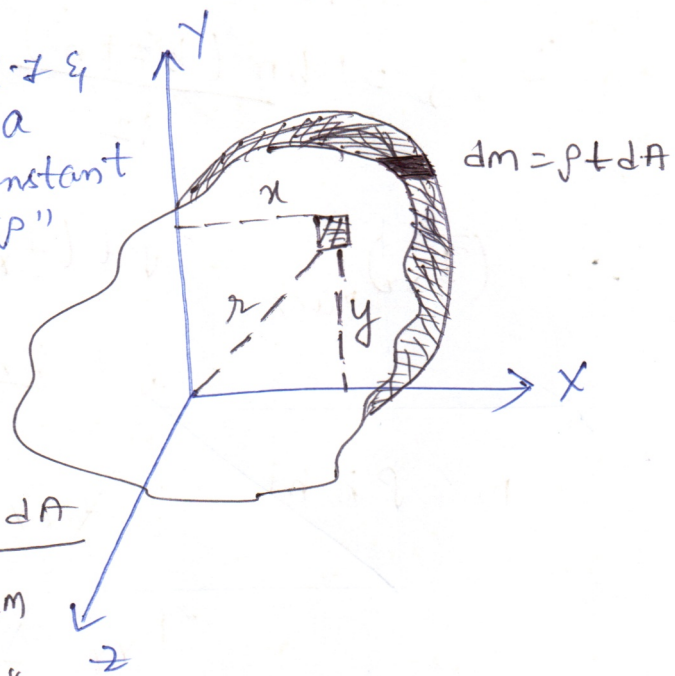 Y
a
nstant
ρ"
dm = ρtdA
x
r
y
X
dA
m
Z